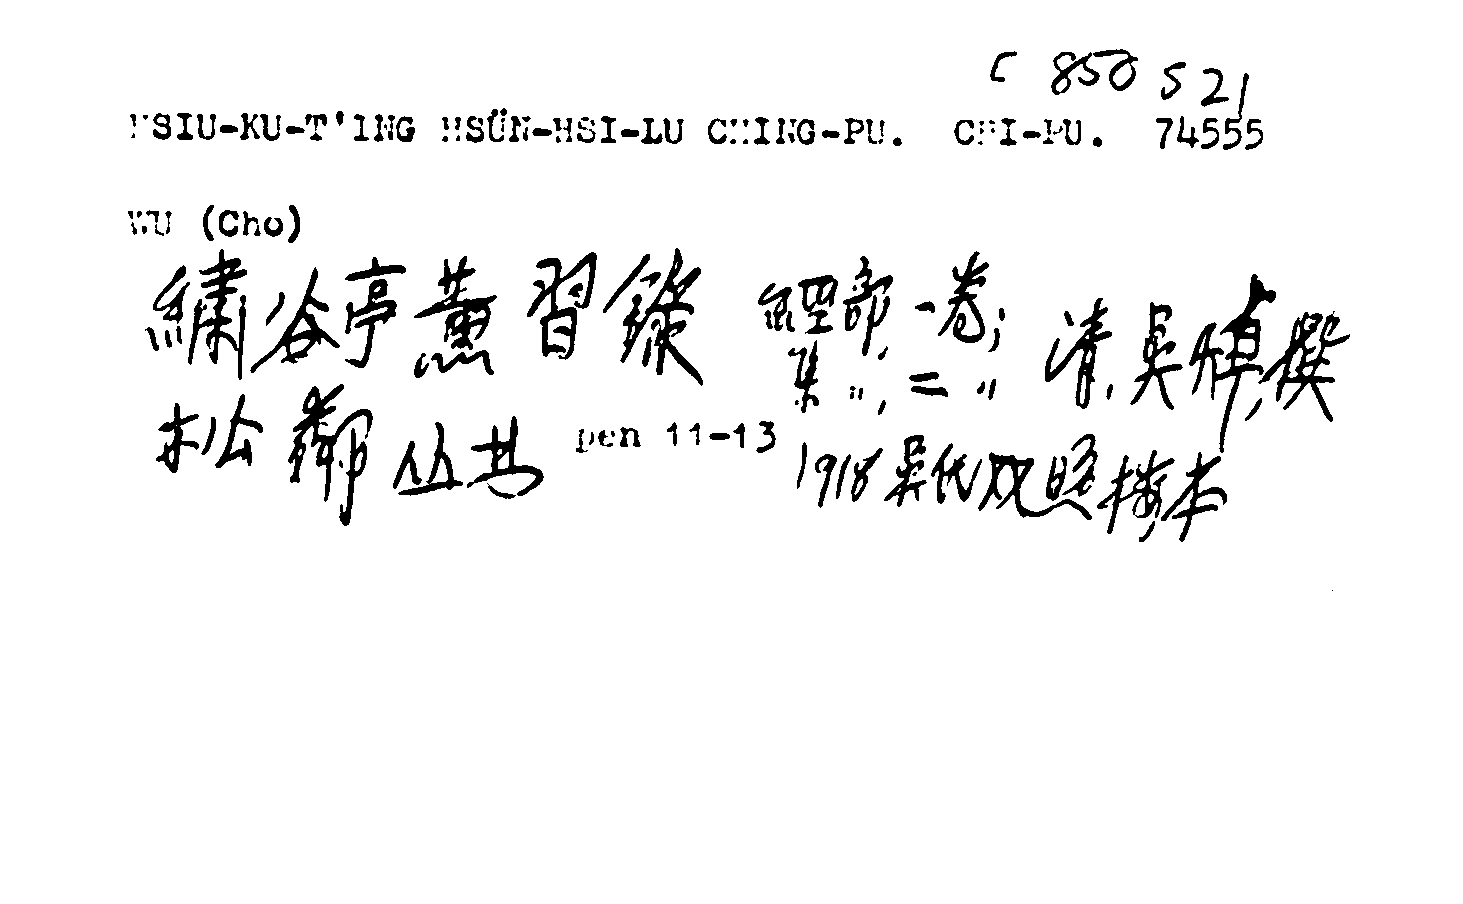 C 850 S 21
HSIU-KU-T'ING HSÜN-HSI-LU CHING-PU. CHI-PU. 74555
WU (Cho)
繡谷亭薰習錄 經部,一卷; 清,吳焯,撰
集〃,二〃
松鄰丛书 pen 11-13
1918吳氏双照樓本